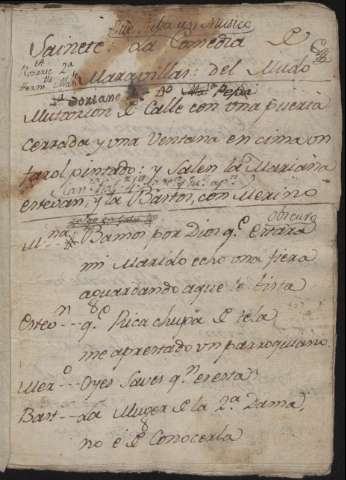 Sainete: La Comedia de
Maravillas: del Mudo
Soriano
Mutacion de Calle con una puerta
cerrada y una Ventana en cima un
farol pintado: y Salen la Mariana
estevan, y la Bastos, con Merino
obscuro
Mna: Bamos por Dios qe. Estara
mi Marido echo una fiera
aguardando aqe le bista
Estevn--- qe. Rica chupa de tela
me aprestado un parroquiano
Mero--- Oyes Saves qn es esta?
Bast--- La Muger de la 2a. Dama,
no e de Conocerla